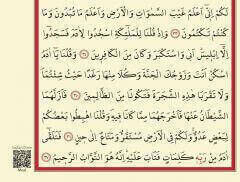 لَكُمْ إِنِّي أَعْلَمُ غَيْبَ السَّمَوَاتِ وَالْأَرْضِ وَأَعْلَمُ مَا تُبْدُونَ وَمَا
كُنتُمْ تَكْتُمُونَ ﴿٣٣﴾ وَإِذْ قُلْنَا لِلْمَلَائِكَةِ اسْجُدُوا لِآدَمَ فَسَجَدُوا
إِلَّا إِبْلِيسَ أَبَى وَاسْتَكْبَرَ وَكَانَ مِنَ الْكَافِرِينَ ﴿٣٤﴾ وَقُلْنَا يَا آدَمُ
اسْكُنْ أَنتَ وَزَوْجُكَ الْجَنَّةَ وَكُلَا مِنْهَا رَغَدًا حَيْثُ شِئْتُمَا
وَلَا تَقْرَبَا هَذِهِ الشَّجَرَةَ فَتَكُونَا مِنَ الظَّالِمِينَ ﴿٣٥﴾ فَأَزَلَّهُمَا
الشَّيْطَانُ عَنْهَا فَأَخْرَجَهُمَا مِمَّا كَانَا فِيهِ وَقُلْنَا اهْبِطُوا بَعْضُكُمْ
لِبَعْضٍ عَدُوٌّ وَلَكُمْ فِي الْأَرْضِ مُسْتَقَرٌّ وَمَتَاعٌ إِلَى حِينٍ ﴿٣٦﴾ فَتَلَقَّى
آدَمُ مِن رَّبِّهِ كَلِمَاتٍ فَتَابَ عَلَيْهِ إِنَّهُ هُوَ التَّوَّابُ الرَّحِيمُ ﴿٣٧﴾